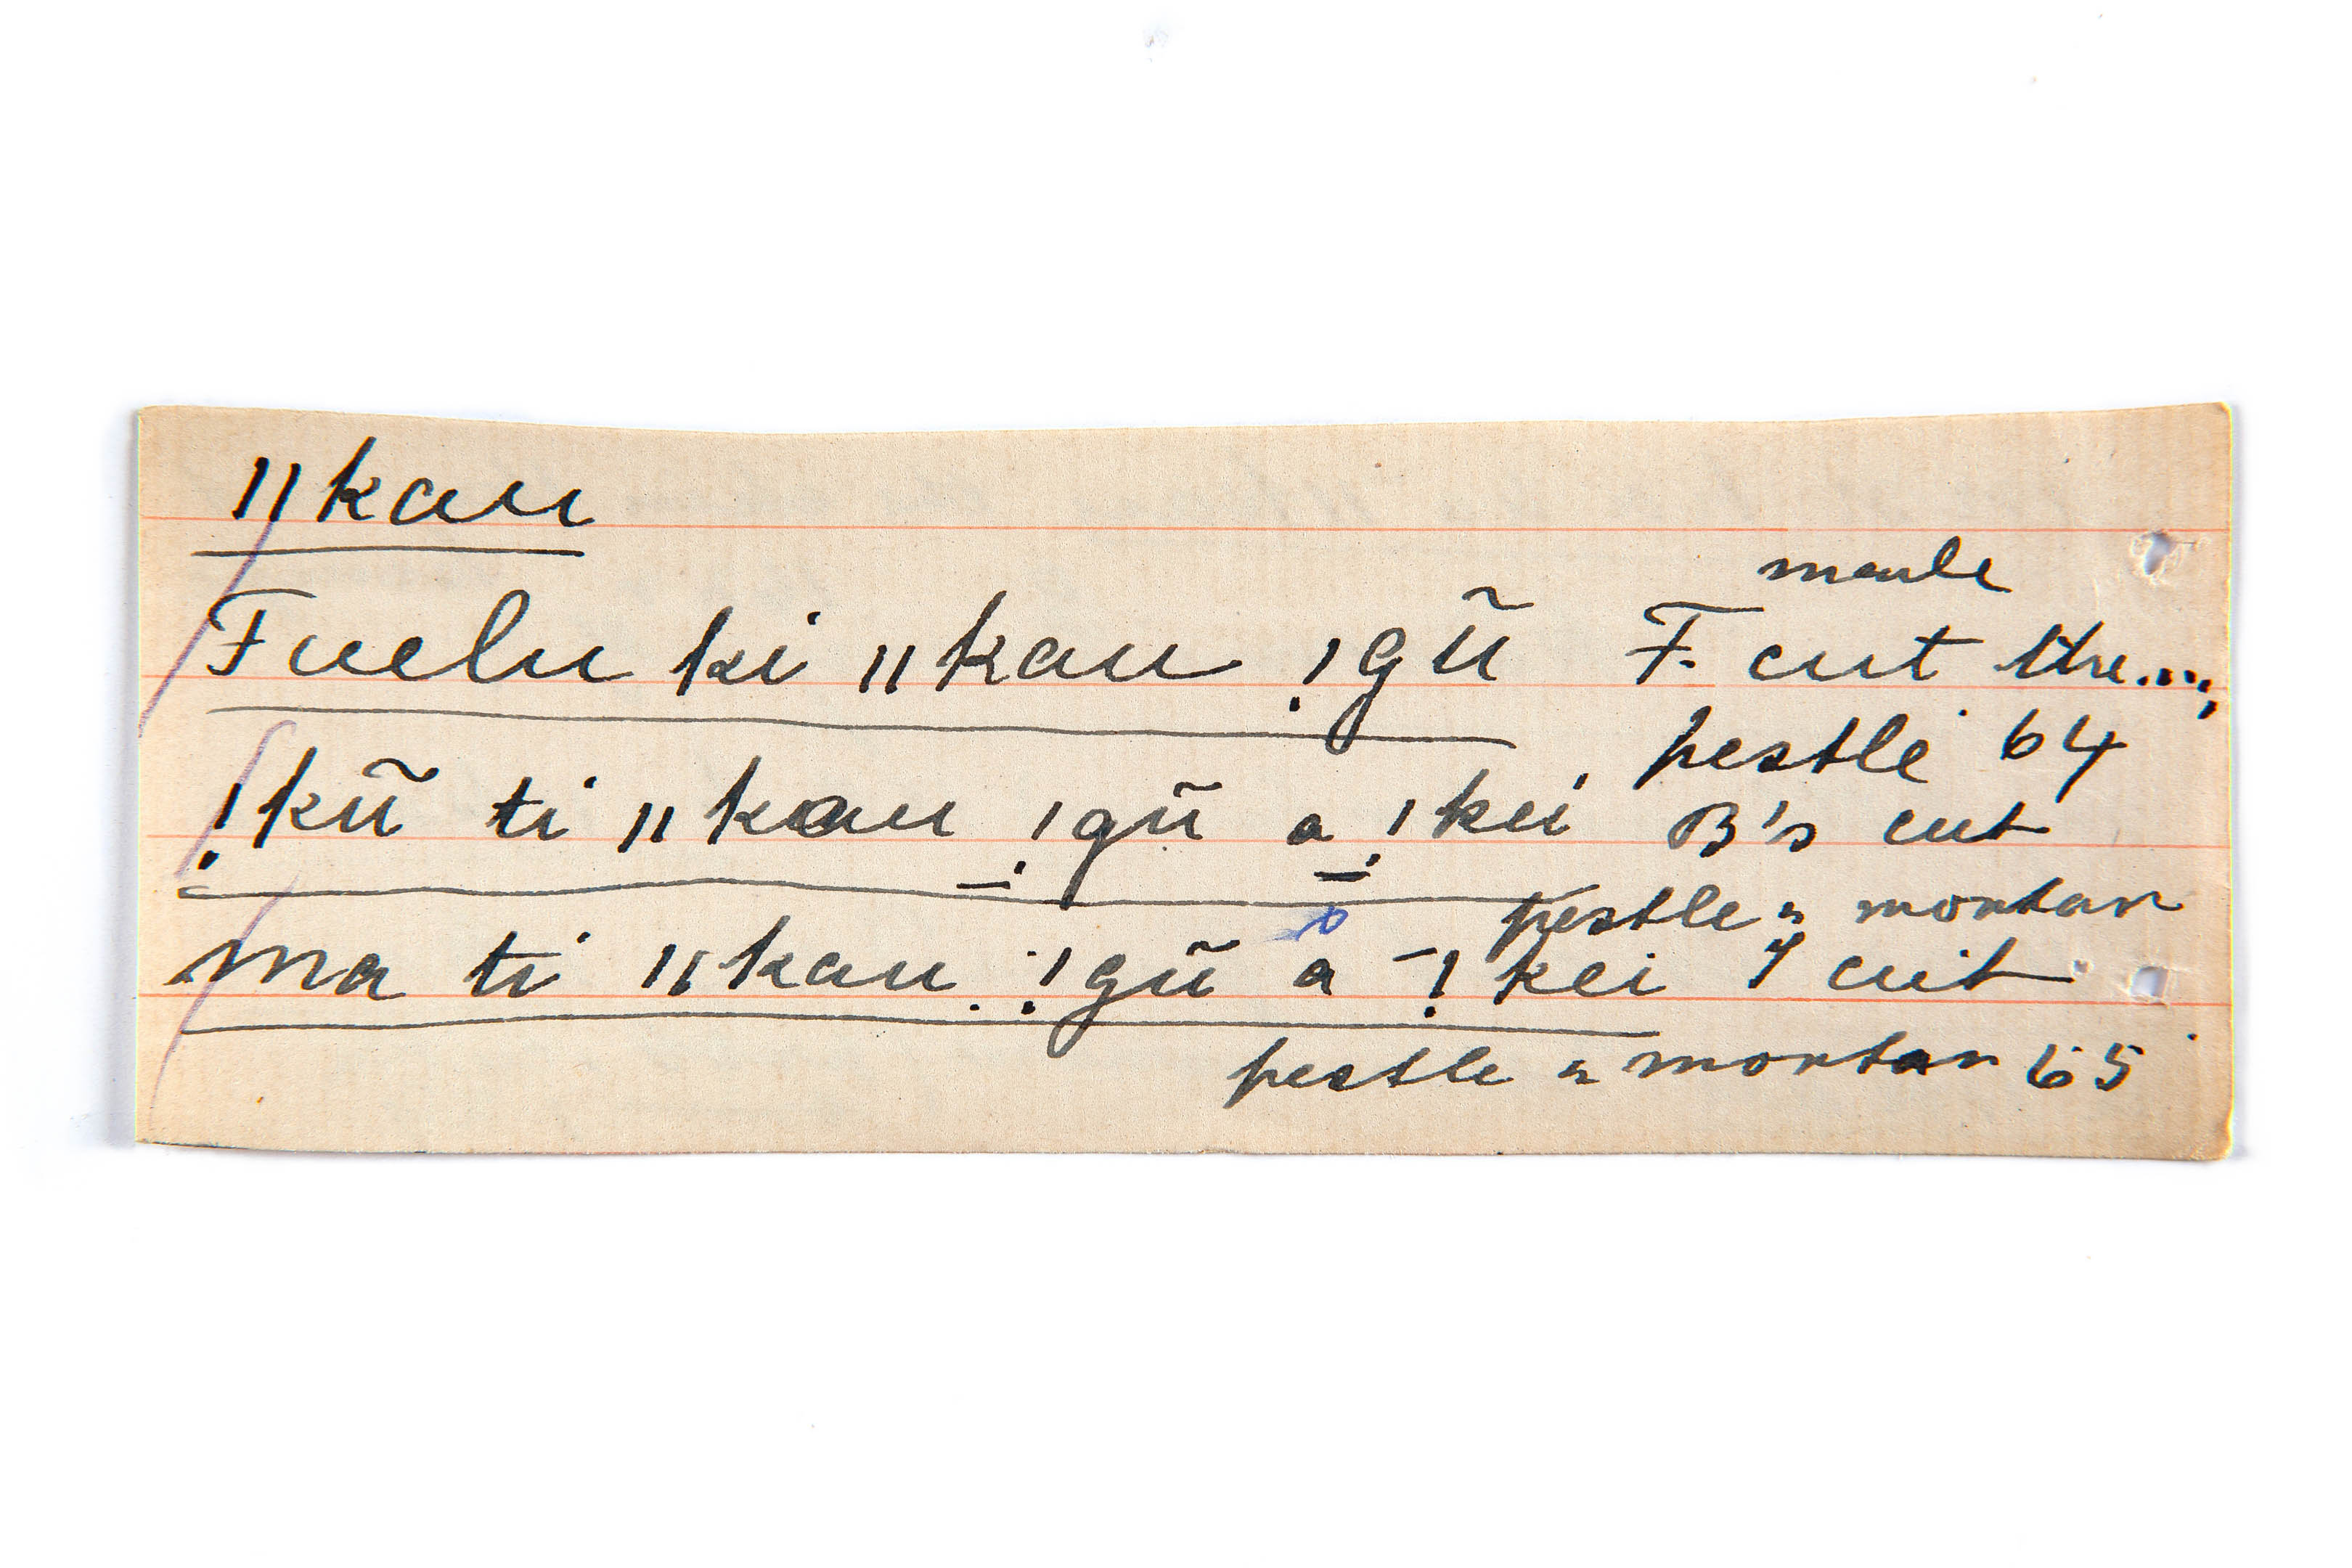 ǁkau
Fuelu ki ǁkau ǃgũ F. cut the...;
made
pestle 64
ǃkũ ti ǁkau ǃgũ a ǃkei B's cut
pestle & mortar
ma ti ǁkau ǃgũ a -ǃkei I cut
pestle & mortar 65